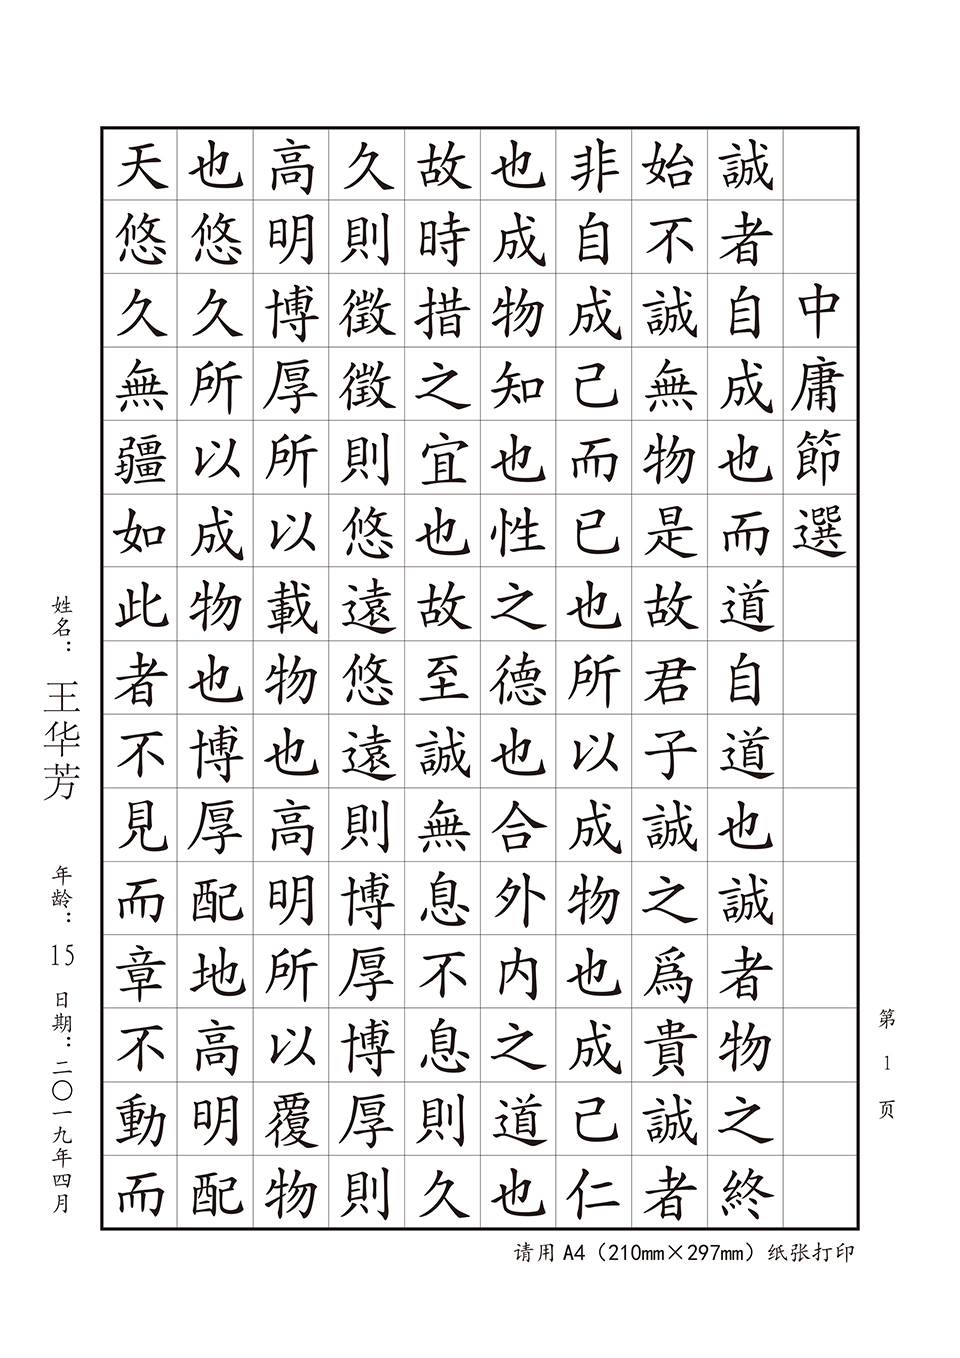 中庸節選
誠者自成也而道自道也誠者物之終
始不誠無物是故君子誠之爲貴誠者
非自成己而已也所以成物也成己仁
也成物知也性之德也合外内之道也
故時措之宜也故至誠無息不息則久
久則徵徵則悠遠悠遠則博厚博厚則
高明博厚所以載物也高明所以覆物
也悠久所以成物也博厚配地高明配
天悠久無疆如此者不見而章不動而
姓名：王华芳 年龄：15 日期：二〇一九年四月
第1页
请用A4（210mm×297mm）纸张打印